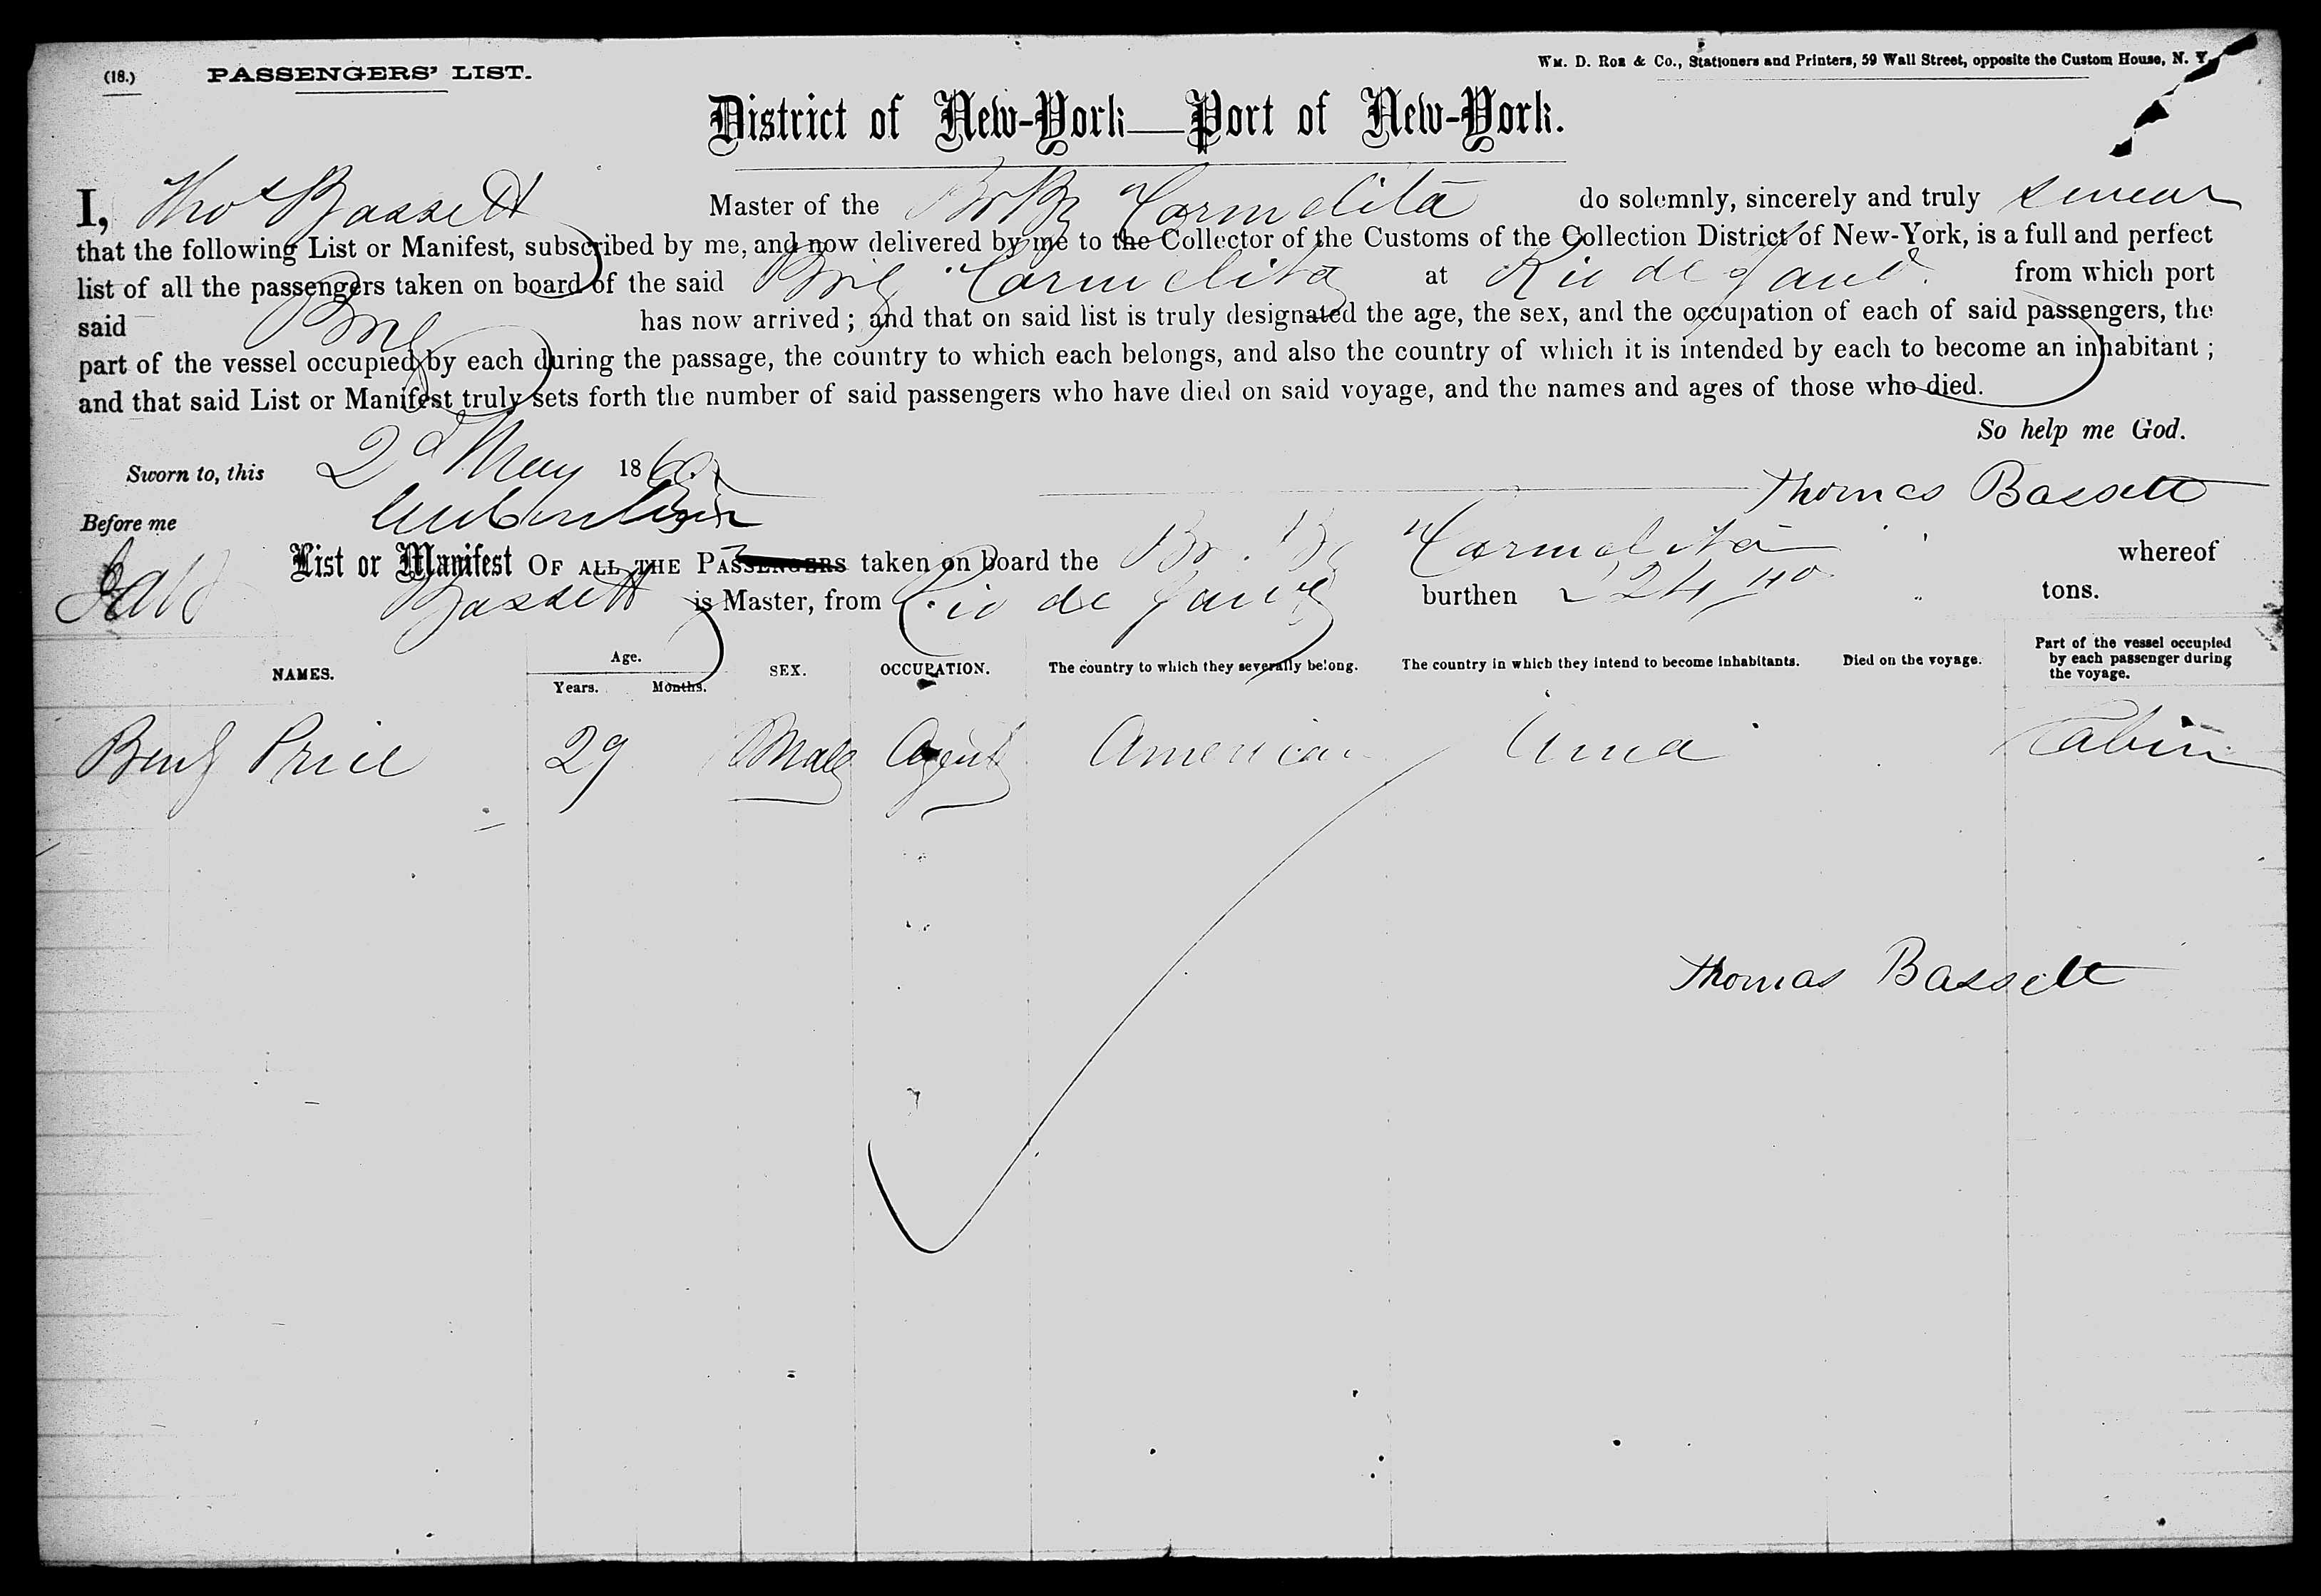 (18.) PASSENGERS' LIST.
Wm. D. Roe & Co., Stationers and Printers, 59 Wall Street, opposite the Custom House, N. Y.
District of New-York—Port of New-York.
I, Thos Bassett Master of the Br Bg "Carmelita do solemnly, sincerely and truly swear
that the following List or Manifest, subscribed by me, and now delivered by me to the Collector of the Customs of the Collection District of New-York, is a full and perfect
list of all the passengers taken on board of the said Brig "Carmelita at Rio de Jane. from which port
said Brig has now arrived; and that on said list is truly designated the age, the sex, and the occupation of each of said passengers, the
part of the vessel occupied by each during the passage, the country to which each belongs, and also the country of which it is intended by each to become an inhabitant;
and that said List or Manifest truly sets forth the number of said passengers who have died on said voyage, and the names and ages of those who died.
So help me God.
Sworn to, this 2d May 186
Thomas Bassett
Before me
List or Manifest OF ALL THE PASSENGERS taken on board the Br. Bg "Carmelita whereof
Bassett is Master, from Rio de Jane burthen 224 40 tons.
NAMES. Age. Years. Months. SEX. OCCUPATION. The country to which they severally belong. The country in which they intend to become inhabitants. Died on the voyage. Part of the vessel occupied by each passenger during the voyage.
Benj Price 29 Male Agent American Cabin
Thomas Bassett